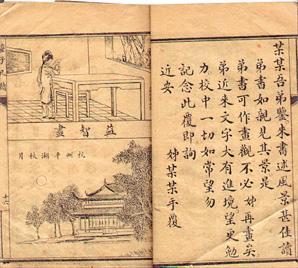 某某吾弟鑒來書述風景甚佳讀
弟書如親見其景是
弟書可作畫觀不必姊再畫矣
弟近來文字大有進境望更勉
力校中一切如常望勿
記念此復即詢
近安
姊某某手復
益智畫
杭州平湖秋月